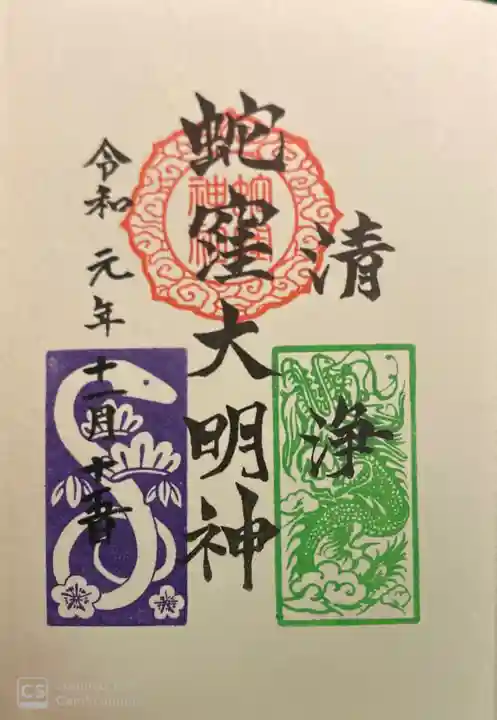 清
浄
蛇窪大明神
令和元年十一月十五日
CS
CamScanner